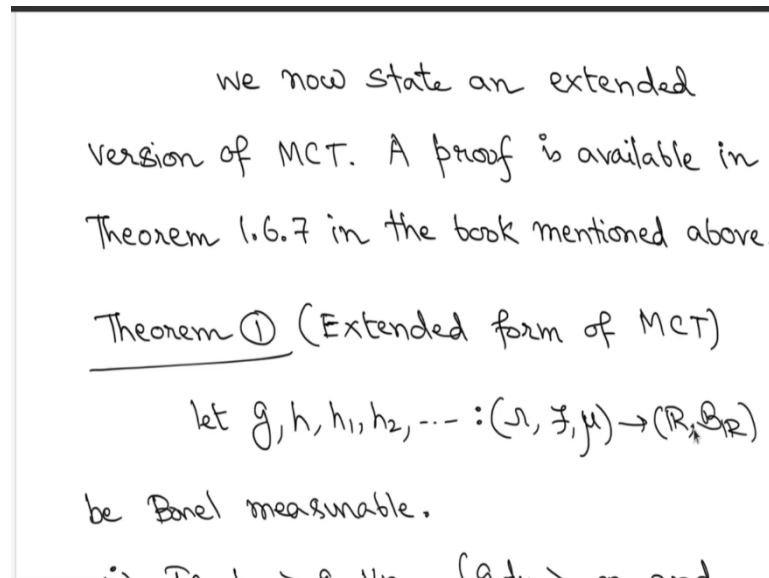 We now state an extended
version of MCT. A proof is available in
Theorem 1.6.7 in the book mentioned above.
Theorem ① (Extended form of MCT)
let g, h, h₁, h₂, ... : (Ω, 𝓕, μ) → (ℝ, 𝓑_ℝ)
be Borel measurable.